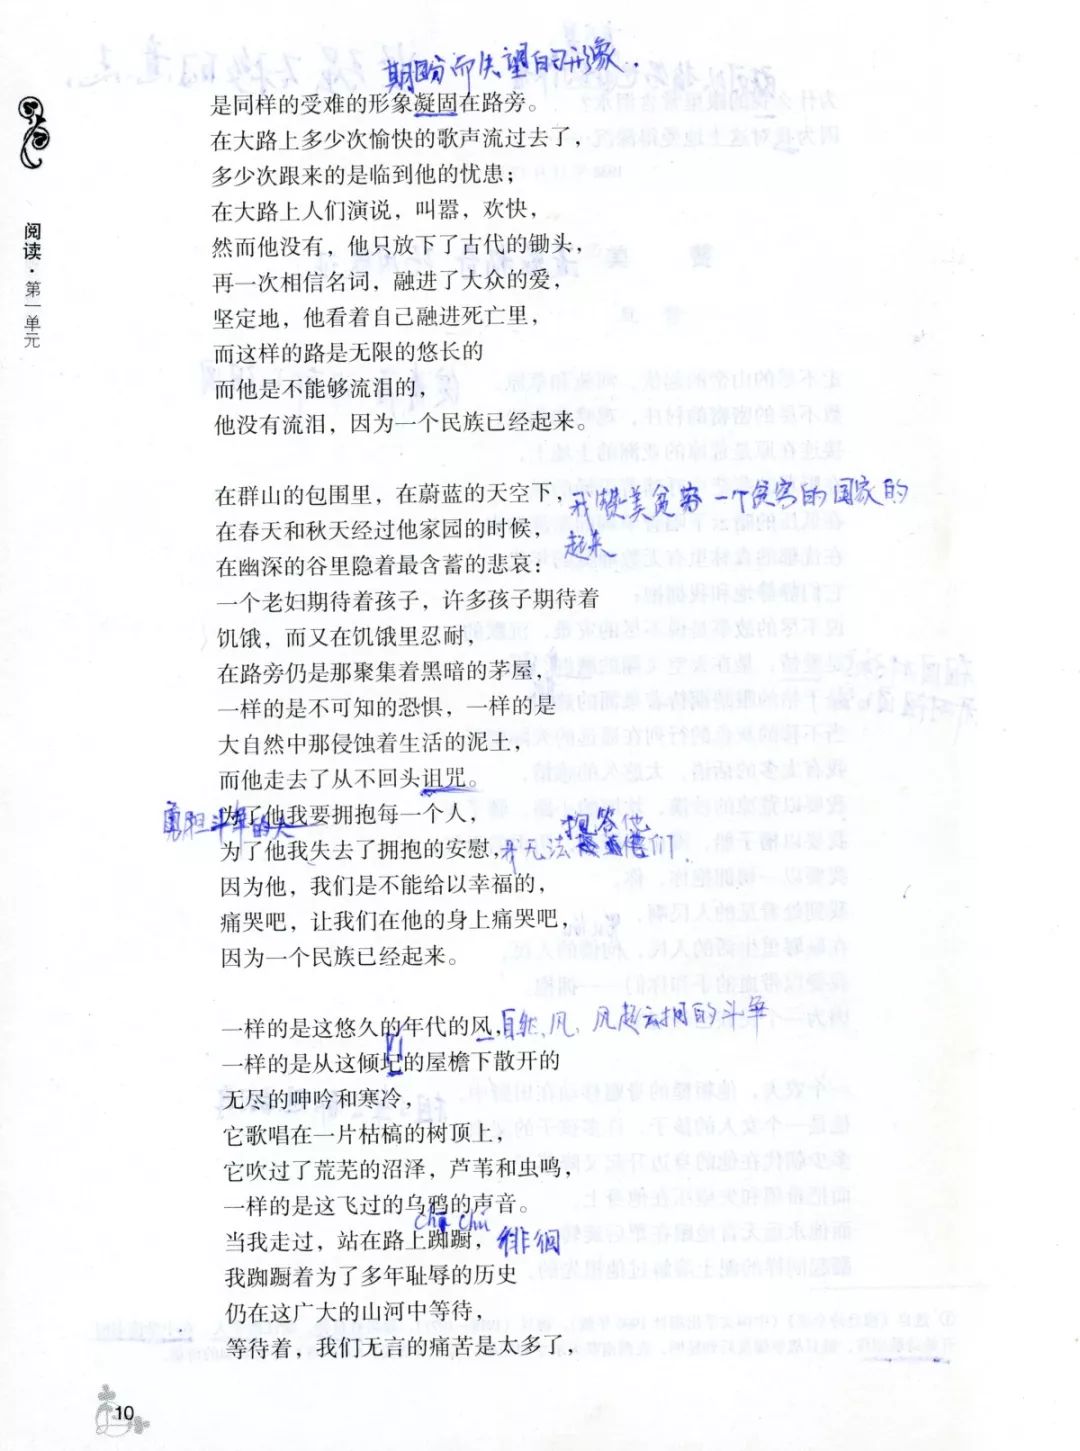 期盼而失望的形象..
是同样的受难的形象凝固在路旁。
在大路上多少次愉快的歌声流过去了，
多少次跟来的是临到他的忧患；
在大路上人们演说，叫嚣，欢快，
然而他没有，他只放下了古代的锄头，
再一次相信名词，融进了大众的爱，
坚定地，他看着自己融进死亡里，
而这样的路是无限的悠长的
而他是不能够流泪的，
他没有流泪，因为一个民族已经起来。
阅读·第一单元
在群山的包围里，在蔚蓝的天空下，
我赞美贫穷一个贫穷的国家的
起来
在春天和秋天经过他家园的时候，
在幽深的谷里隐着最含蓄的悲哀：
一个老妇期待着孩子，许多孩子期待着
饥饿，而又在饥饿里忍耐，
在路旁仍是那聚集着黑暗的茅屋，
一样的是不可知的恐惧，一样的是
大自然中那侵蚀着生活的泥土，
而他走去了从不回头诅咒。
为了他我要拥抱每一个人，
为了他我失去了拥抱的安慰，
我无法
们.
因为他，我们是不能给以幸福的，
痛哭吧，让我们在他的身上痛哭吧，
因为一个民族已经起来。
一样的是这悠久的年代的风，
自然、风、风起云拥的斗争
一样的是从这倾圮的屋檐下散开的
无尽的呻吟和寒冷，
它歌唱在一片枯槁的树顶上，
它吹过了荒芜的沼泽，芦苇和虫鸣，
一样的是这飞过的乌鸦的声音。
chí chú
当我走过，站在路上踟蹰，
徘徊
我踟蹰着为了多年耻辱的历史
仍在这广大的山河中等待，
等待着，我们无言的痛苦是太多了，
10